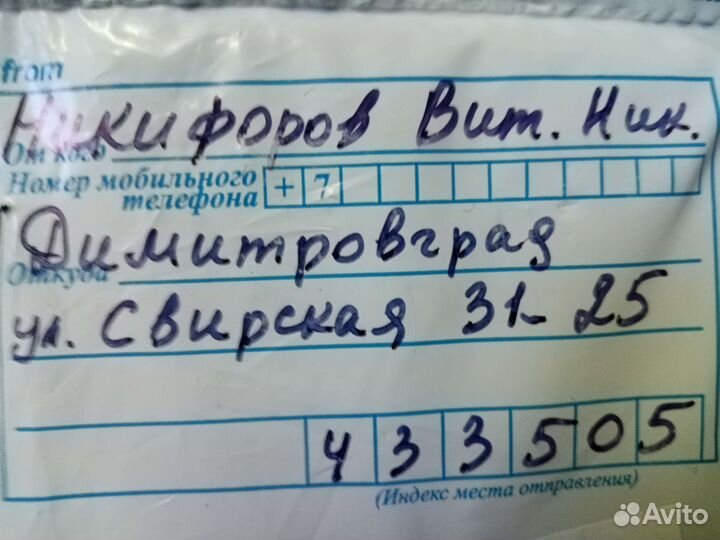 from
Никифоров Вит. Ник.
От кого
Номер мобильного
телефона +7
Димитровград
Откуда
ул. Свирская 31-25
433505
(Индекс места отправления)
Avito